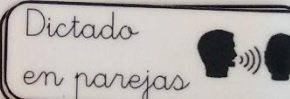 Dictado
en parejas